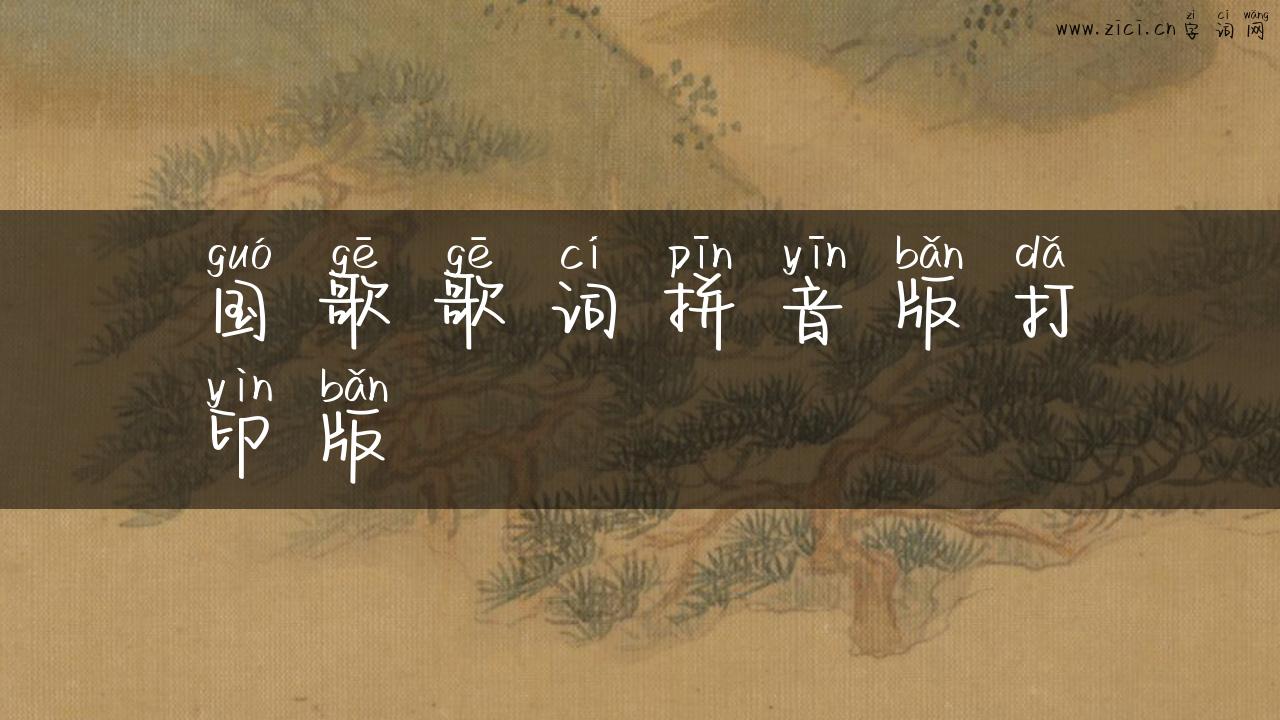 zì cí wǎng
www.zici.cn 字词网
guó gē gē cí pīn yīn bǎn dǎ
国歌歌词拼音版打
yìn bǎn
印版